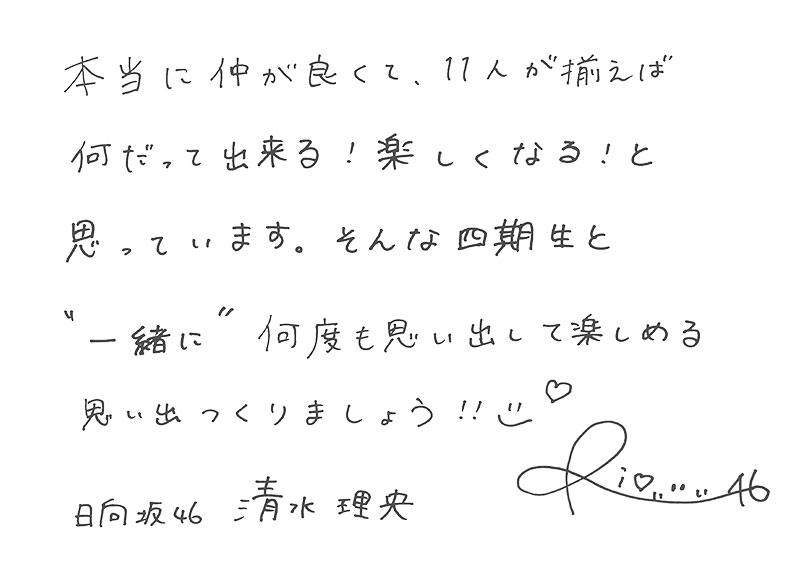 本当に仲が良くて、11人が揃えば
何だって出来る!楽しくなる!と
思っています。そんな四期生と
"一緒に"何度も思い出して楽しめる
思い出つくりましょう!!
日向坂46 清水理央
Rio 46